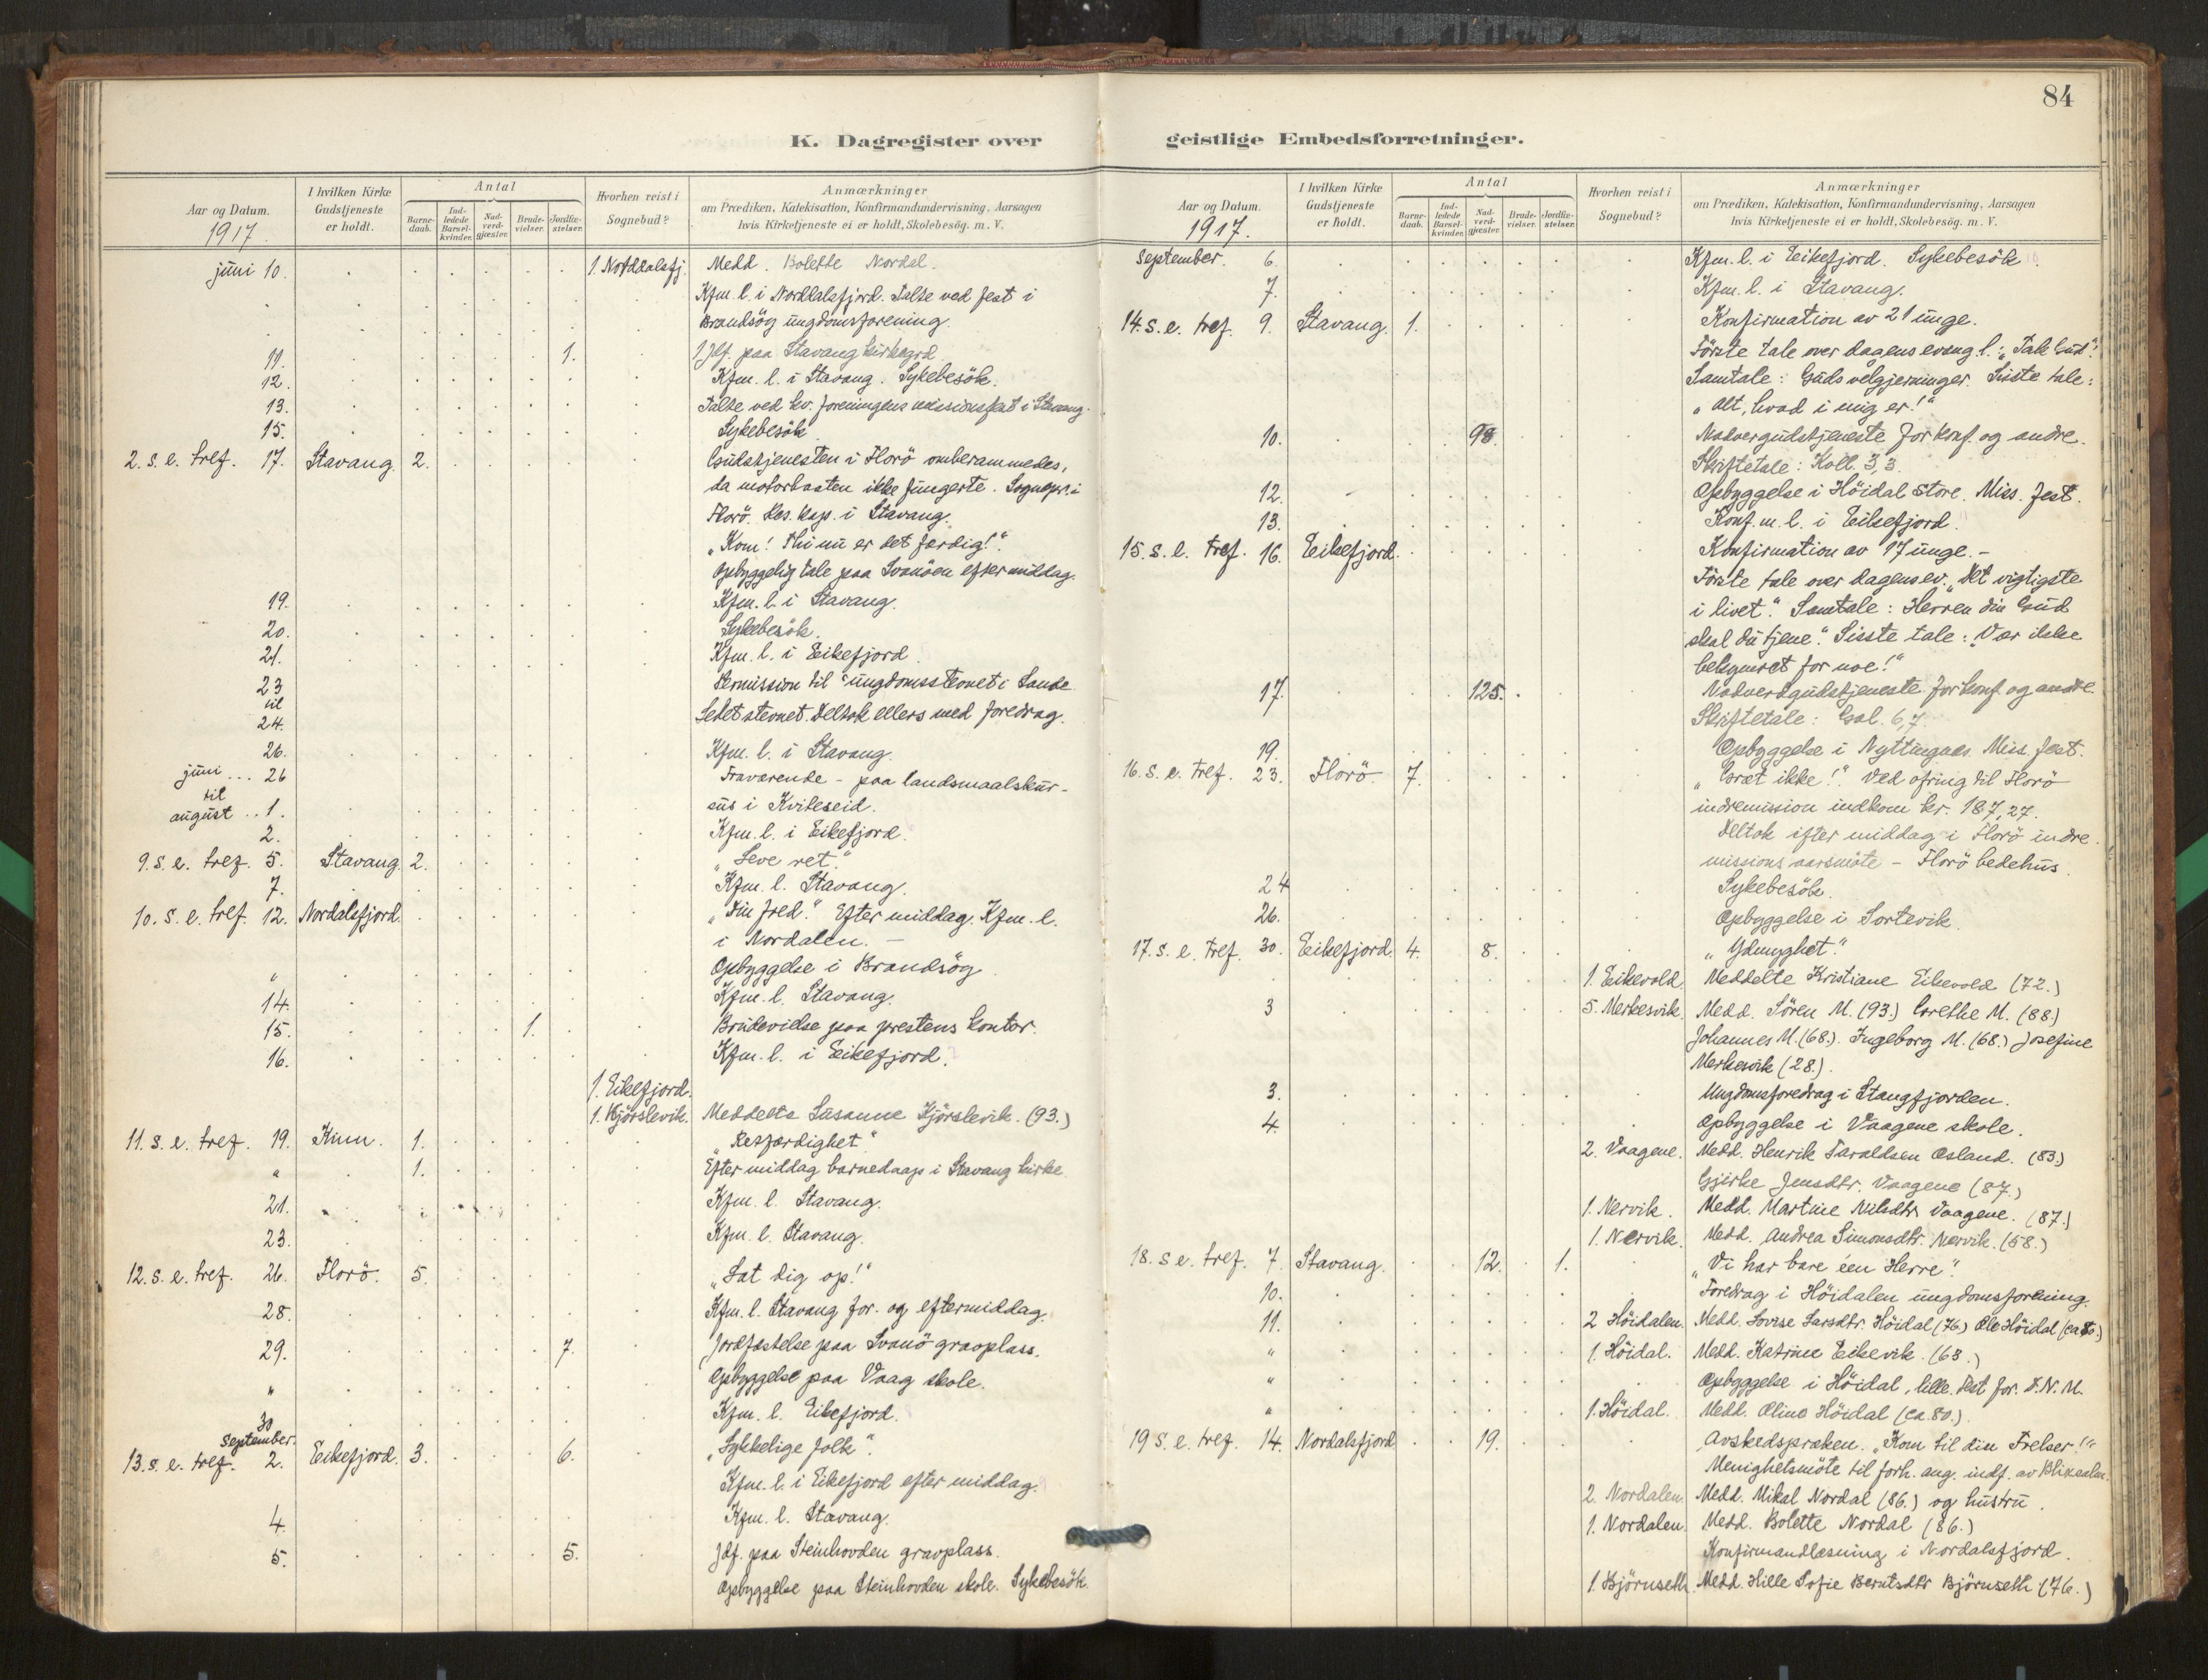 84
K. Dagregister over
Aar og Datum.
1917.
I hvilken Kirke Gudstjeneste er holdt.
Antal
Barnedaab.
Indledede Barselkvinder.
Nadverdgjæster.
Brudevielser.
Jordfæstelser.
Hvorhen reist i Sognebud?
Anmærkninger
om Prædiken, Katekisation, Konfirmandundervisning, Aarsagen
hvis Kirketjeneste ei er holdt, Skolebesög. m. V.
juni 10. 1 Norddalsfj. Medd. Bolette Nordal.
Kfm. l. i Norddalsfjord. Talte ved fest i
Brandsög ungdomsforening.
11. 1. 1 Jdf. paa Stavang kirkegrd.
12. Kfm. l. i Stavang. Sykebesök.
13. Talte ved kv. foreningens missionsfest i Stavang.
15. Sykebesök
2. s. e. tref. 17. Stavang. 2. Gudstjenesten i Florö omberammedes,
da motorbaaten ikke fungerte. Sognepr. i
Florö. Res. kap. i Stavang.
„Kom! Thi nu er det færdig!“.
Opbyggelig tale paa Svanöen eftermiddag.
19. Kfm. l. i Stavang.
20. Sykebesök.
21. Kfm. l. i Eikefjord.
23 Permission til ungdomsstevnet i Sande
til
24. Ledet stevnet. Deltok ellers med foredrag.
26. Kfm. l. i Stavang.
juni ... 26 Fraværende - paa landsmaalskur-
til
august .. 1. sus i Kviteseid.
2. Kfm. l. i Eikefjord.
9. s. e. tref. 5. Stavang. 2. „Leve ret.“
7. Kfm. l. Stavang.
10. s. e. tref. 12. Nordalsfjord. „Din fred.“ Efter middag. Kfm. l.
i Nordalen. -
„ Opbyggelse i Brandsög.
14. Kfm. l. Stavang.
15. 1. Brudevielse paa prestens kontor.
16. Kfm. l. i Eikefjord.
1. Eikefjord.
1. Kjörslevik. Meddelte Susanne Kjörslevik. (93.)
11. s. e. tref. 19. Kinn. 1. „Retfærdighet.“
„ 1. Efter middag barnedaap i Stavang kirke.
21. Kfm. l. Stavang.
23. Kfm. l. Stavang.
12. s. e. tref. 26. Florö. 5. „Lat dig op!“
28. Kfm. l. Stavang for. og eftermiddag.
29. 7. Jordfæstelse paa Svanö gravplass.
„ Opbyggelse paa Vaag skole.
30 Kfm. l. Eikefjord.
September.
13. s. e. tref. 2. Eikefjord. 3. 6. „Lykkelige folk“.
Kfm. l. i Eikefjord efter middag.
4. Kfm. l. Stavang.
5. 5. Jdf. paa Steinhovden gravplass.
Opbyggelse paa Steinhovden skole. Sykebesök.
geistlige Embedsforretninger.
Aar og Datum.
1917.
I hvilken Kirke Gudstjeneste er holdt.
Antal
Barnedaab.
Indledede Barselkvinder.
Nadverdgjæster.
Brudevielser.
Jordfæstelser.
Hvorhen reist i Sognebud?
Anmærkninger
om Prædiken, Katekisation, Konfirmandundervisning, Aarsagen
hvis Kirketjeneste ei er holdt, Skolebesög. m. V.
September. 6. Kfm. l. i Eikefjord. Sykebesök.
7. Kfm. l. i Stavang.
14. s. e. tref. 9. Stavang. 1. Konfirmation av 21 unge.
Förste tale over dagens evang l.: „Tak Gud“.
Samtale: Guds velgjerninger. Sisste tale:
„Alt, hvad i mig er!“
10. 98. Nadvergudstjeneste for konf. og andre.
Skriftetale: Koll. 3,3.
12. Opbyggelse i Höidal store. Miss. fest.
13. Konf. m. l. i Eikefjord.
15. s. e. tref. 16. Eikefjord. Konfirmation av 17 unge. -
Förste tale over dagens ev. „Det vigtigste
i livet.“ Samtale: Herren din Gud
skal du tjene.“ Sisste tale: „Vær ikke
bekymret for noe!“
17. 125. Nadverdgudstjeneste for konf. og andre.
Skriftetale: Gal. 6,7.
19. Opbyggelse i Nyttingnes. Miss. fest.
16. s. e. tref. 23. Florö. 7. „Græt ikke!“ Ved ofring til Florö
indremission indkom kr. 187,27.
Deltok efter middag i Florö indre
missions aarsmöte - Florö bedehus.
24 Sykebesök.
26. Opbyggelse i Sortevik.
17. s. e. tref. 30. Eikefjord. 4. 8. „Ydmyghet.“
1. Eikevold. Meddelte Kristiane Eikevold (72.)
3 5. Merkesvik. Medd. Sören M. (93.) Grethe M. (88)
Johannes M. (68.). Ingeborg M. (68.) Josefine
Merkesvik (28.).
3. Ungdomsforedrag i Stangfjorden.
4. Opbyggelse i Vaagene skole.
2. Vaagene. Medd. Henrik Taraldsen Osland. (83.)
Gjirke Jensdtr. Vaagene (87.)
1. Nervik. Medd. Martine Nilsdtr Vaagene. (87.)
1. Nervik. Medd. Andrea Simonsdtr. Nervik. (58.)
18. s e. tref. 7. Stavang. 12. 1. „Vi har bare éen Herre“.
10. Foredrag i Höidalen ungdomsforening.
11. 2 Höidalen. Medd. Lovise Larsdtr. Höidal (76.) Ole Höidal (ca 80.)
„ 1. Höidal. Medd. Katrine Eikevik. (63.)
„ Opbyggelse i Höidal, lille. Fest for. D. N. M.
„ 1. Höidal. Medd. Oline Höidal (ca. 80.).
19 s. e. tref. 14. Nordalsfjord 19. Avskedspræken. „Kom til din Frelser!“
Menighetsmöte til forh. ang. indf. av
2. Nordalen. Medd. Mikal Nordal (86.) og hustru.
1. Nordalen. Medd. Bolette Nordal (86.)
Konfirmandlæsning i Nordalsfjord.
1. Björnseth. Medd. Hille Sofie Berntsdtr Björnseth (76.)